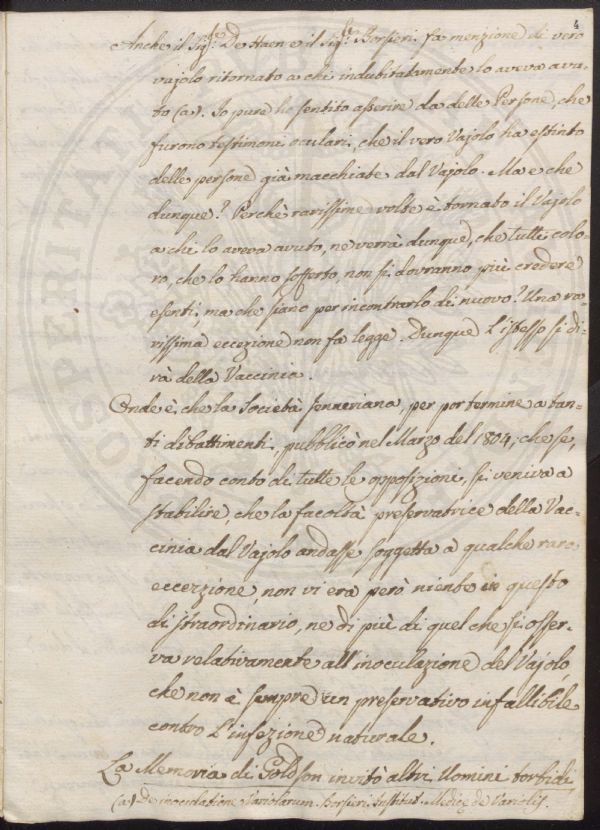 4
Anche il Sig.re De Haen e il Sig.re Borsieri fa menzione di vero
vajolo ritornato a chi indubitatamente lo aveva avu-
to (a). Io pure ho sentito asserire da delle Persone, che
furono testimoni oculari, che il vero Vajolo ha estinto
delle persone già macchiate dal Vajolo. Ma e che
dunque? Perchè rarissime volte è tornato il Vajolo
a chi lo aveva avuto, ne verrà dunque, che tutti colo-
ro, che lo hanno sofferto, non si dovranno più credere
esenti, ma che siano per incontrarlo di nuovo? Una ra-
rissima eccezione non fa legge. Dunque l'istesso si di-
rà della Vaccinia.
Onde è, che la Società Jenneriana, per por termine a tan-
ti dibattimenti, pubblicò nel Marzo del 1804, che se,
facendo conto di tutte le opposizioni, si veniva a
stabilire, che la facoltà preservatrice della Vac-
cinia dal Vajolo andasse soggetta a qualche rara
eccezione, non vi era però niente in questo
di straordinario, ne di più di quel che si osser-
va relativamente all'inoculazione del Vajolo,
che non è sempre un preservativo infallibile
contro l'infezione naturale.
La Memoria di Goldson invitò altri Uomini torbidi
(a) De inoculatione Variolarum. Borsieri Institut. Medicæ de Variolis.
PROSPERITATI PUBLICÆ